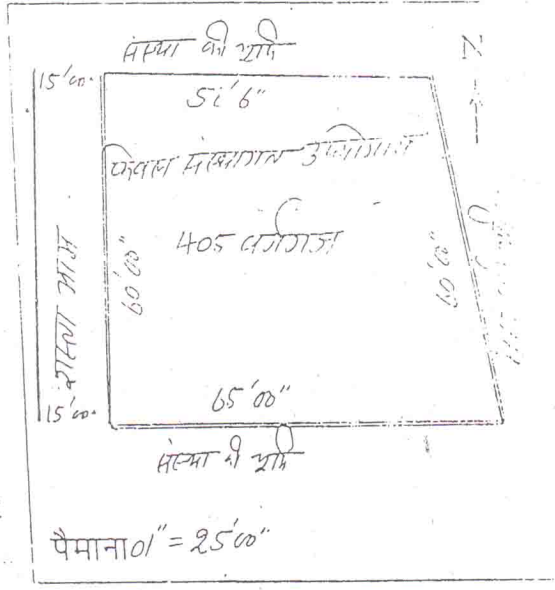 संस्था की भूमि
N
15'00"
51'6"
केवल संस्थागत उपयोगार्थ
405 वर्गगज
रास्ता आम
60'00"
60'00"
65'00"
15'00"
संस्था की भूमि
पैमाना 01" = 25'00"